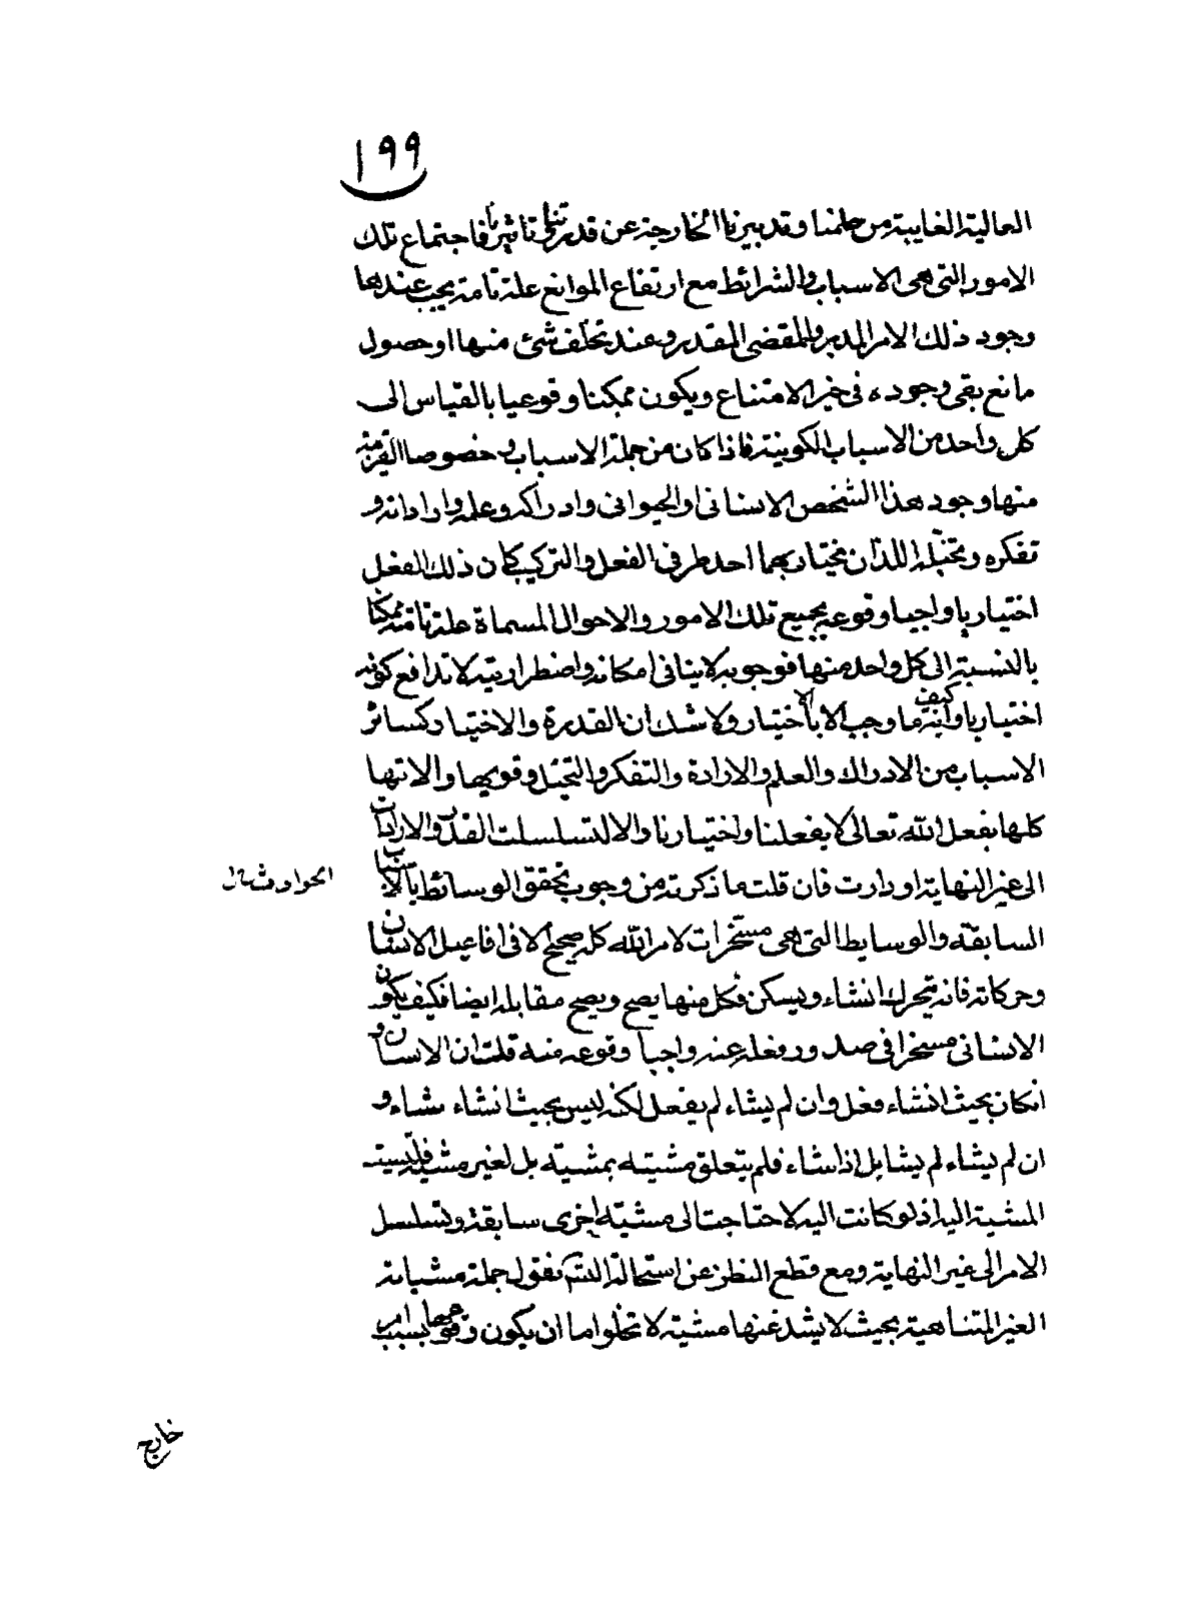 ١٩٩
العالية الغايبة من علمنا و تدبيرنا الخارجة عن قدرتنا و تاثيرنا فاجتماع تلك
الامور التى هى الاسباب و الشرائط مع ارتفاع الموانع علة تامة يجب عندها
وجود ذلك الامر المدبر و المقضى المقدر و عند تخلف شئ منها او حصول
مانع بقى وجوده فى حيز الامتناع و يكون ممكنا وقوعيا بالقياس الى
كل واحد من الاسباب الكونية فاذا كان من جملة الاسباب و خصوصا القريبة
منها وجود هذا الشخص الانسانى او الحيوانى و ادراكه و علمه و ارادته و
تفكره و تخيله اللذان يختار بهما احد طرفى الفعل و الترك كان ذلك الفعل
اختياريا واجبا وقوعه بجميع تلك الامور و الاحوال المسماة علة تامة ممكنا
بالنسبة الى كل واحد منها فوجوبه لا ينافى امكانه و اضطراريته لا تدافع كونه
اختياريا و كيف انه ما وجب الا بالاختيار و لا شك ان القدرة و الاختيار كسائر
الاسباب من الادراك و العلم و الارادة و التفكر و التخيل و قويها و الاتها
كلها بفعل الله تعالى لا بفعلنا و اختيارنا و الا لتسلسلت القدر و الارادات
الى غير النهاية او دارت فان قلت ما ذكرته من وجوب تحقق الوسائط بالاسباب
السابقة و الوسايط التى هى مسخرات لامر الله كله صحيح الا فى افاعيل الانسان
و حركاته فانه يتحرك انشاء و يسكن فكل منها يصح و يصح مقابله ايضا فكيف يكون
الانسانى مسخرا فى صدور فعله عنه واجبا وقوعه منه قلت ان الانسان و
انكان بحيث انشاء فعل و ان لم يشاء لم يفعل لكنه ليس بحيث انشاء شاء و
ان لم يشاء لم يشا بل اذا شاء فلم يتعلق مشيته بمشيته بل لغير مشيته فليست
المشية اليه اذ لو كانت اليه لاحتاجت الى مشية اخرى سابقة و تسلسل
الامر الى غير النهاية و مع قطع النظر عن استحالة التسَـ نقول جملة مشياته
الغير المتناهية بحيث لا يشذ عنها مشية لا تخلوا اما ان يكون وقوعها بسبب امر
خارج